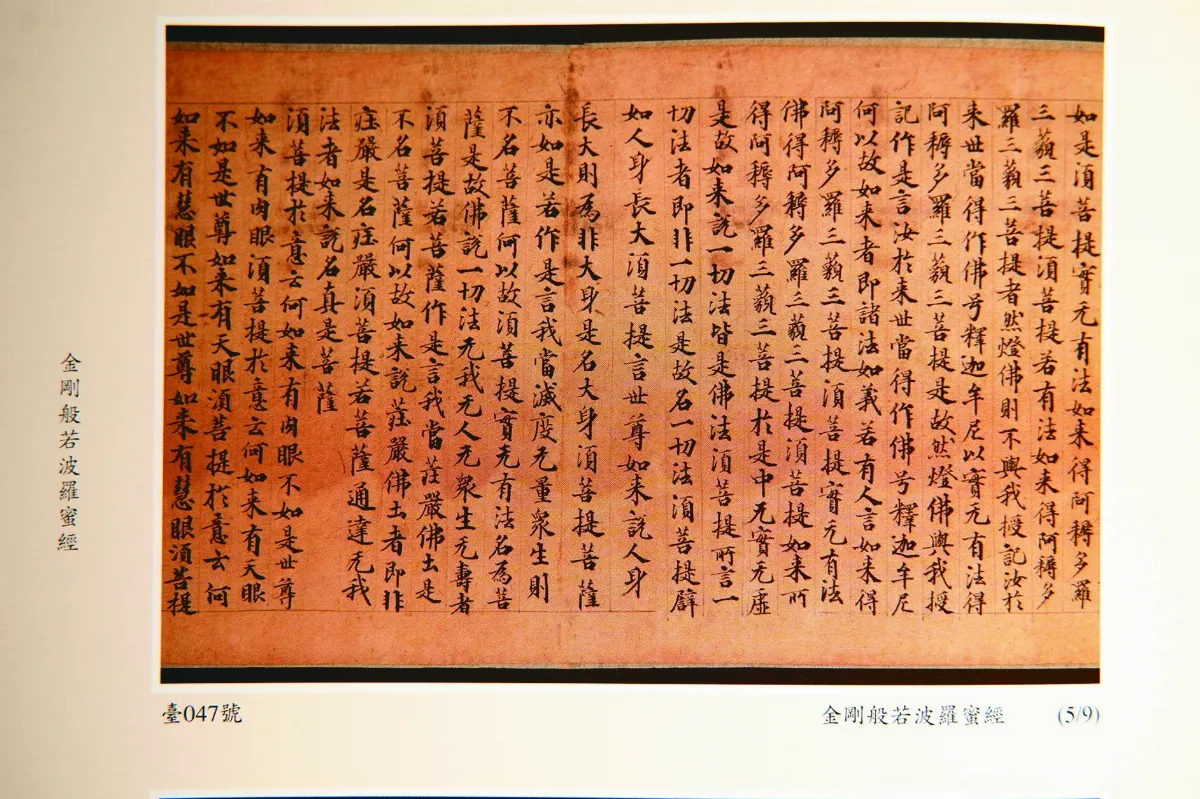 如是須菩提實无有法如来得阿耨多羅
三藐三菩提須菩提若有法如来得阿耨多
羅三藐三菩提者然燈佛則不與我授記汝於
来世當得作佛号釋迦牟尼以實无有法得
阿耨多羅三藐三菩提是故然燈佛與我授
記作是言汝於来世當得作佛号釋迦牟尼
何以故如来者即諸法如義若有人言如来得
阿耨多羅三藐三菩提須菩提實无有法
佛得阿耨多羅三藐三菩提須菩提如来所
得阿耨多羅三藐三菩提於是中无實无虛
是故如来說一切法皆是佛法須菩提所言一
切法者即非一切法是故名一切法須菩提譬
如人身長大須菩提言世尊如来說人身
長大則為非大身是名大身須菩提菩薩
亦如是若作是言我當滅度无量衆生則
不名菩薩何以故須菩提實无有法名為菩
薩是故佛說一切法无我无人无衆生无壽者
須菩提若菩薩作是言我當莊嚴佛土是
不名菩薩何以故如来說莊嚴佛土者即非
莊嚴是名莊嚴須菩提若菩薩通達无我
法者如来說名真是菩薩
須菩提於意云何如来有肉眼不如是世尊
如来有肉眼須菩提於意云何如来有天眼
不如是世尊如来有天眼須菩提於意云何
如来有慧眼不如是世尊如来有慧眼須菩提
金剛般若波羅蜜經
臺047號
金剛般若波羅蜜經 (5/9)